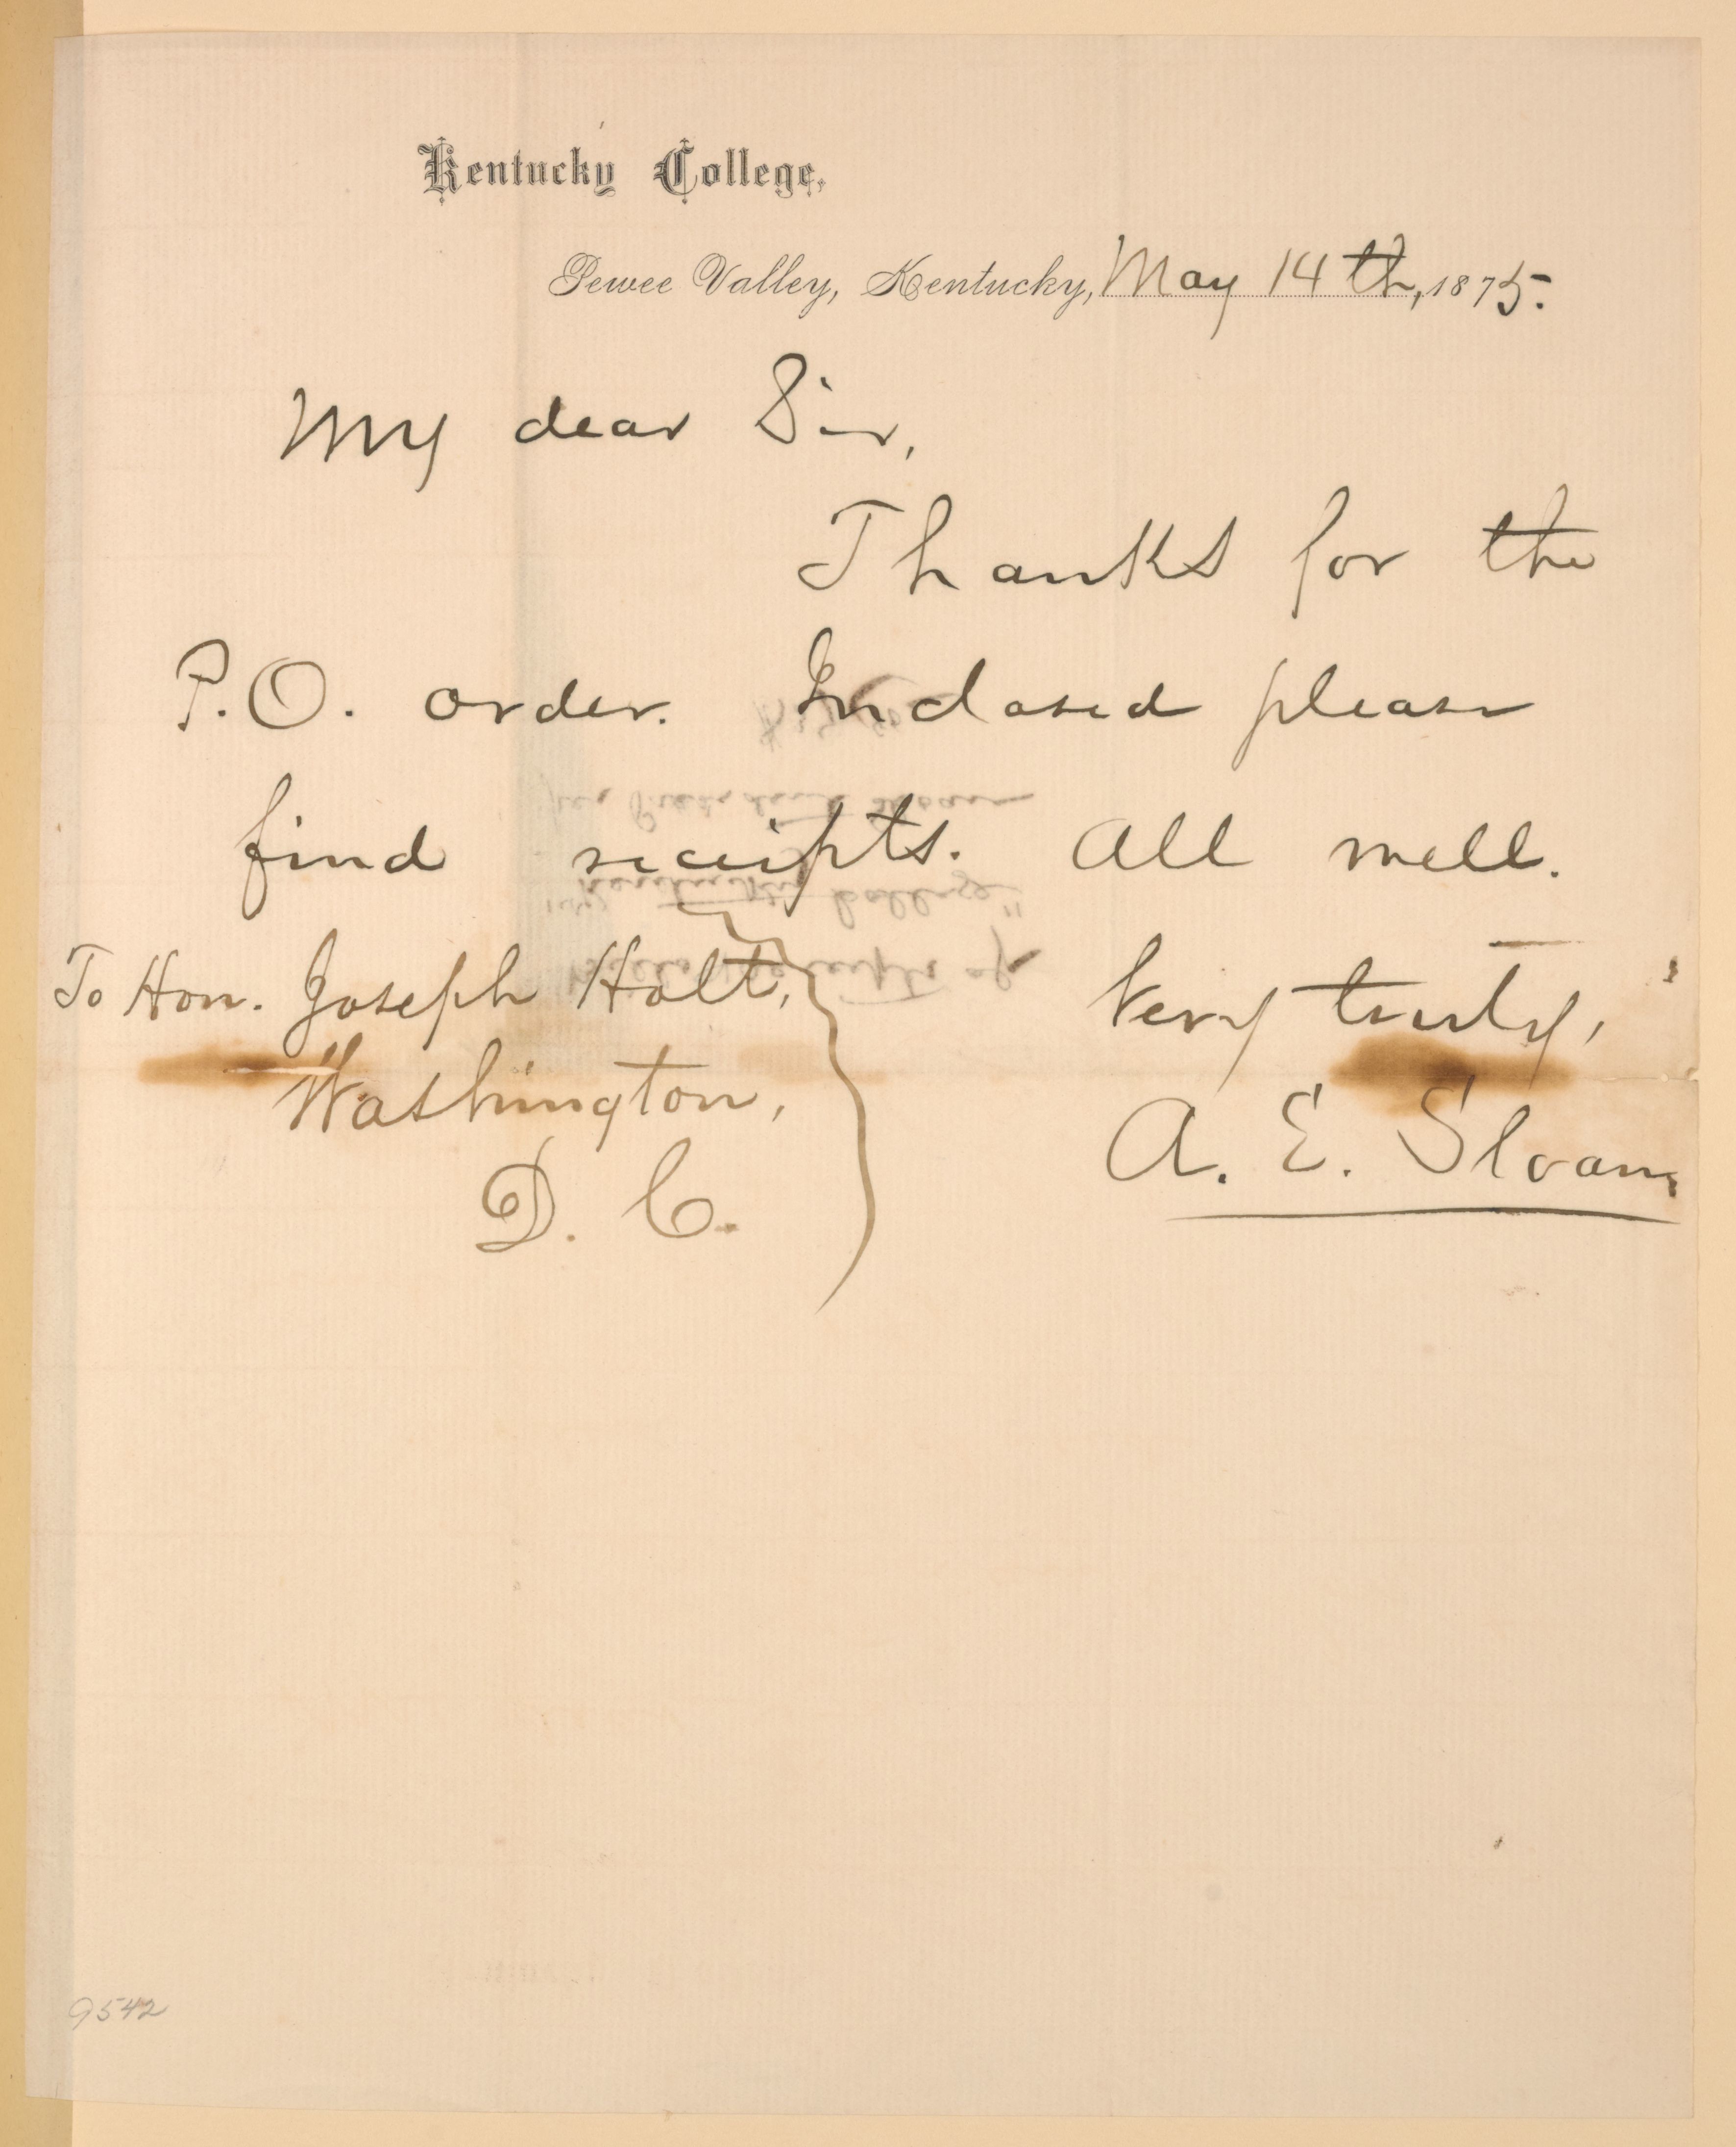 Kentucky College,
Pewee Valley, Kentucky, May 14th, 1875.
My dear Sir,
Thanks for the
P.O. order. Inclosed please
find receipts. All well.
Very truly,
A. E. Sloan.
To Hon. Joseph Holt,
Washington,
D. C.
9542